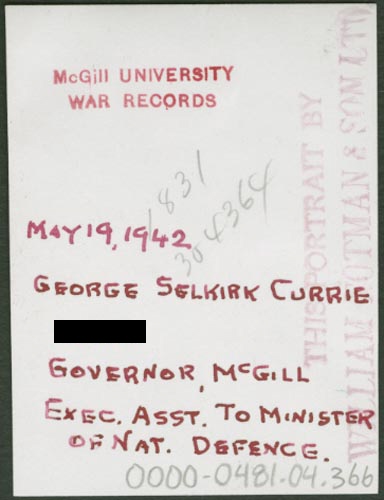 McGill UNIVERSITY
WAR RECORDS
1831
304364
MAY 19, 1942
GEORGE SELKIRK CURRIE
GOVERNOR, McGILL
EXEC. ASST. TO MINISTER
OF NAT. DEFENCE.
0000-0481.04.366
THIS PORTRAIT BY
WILLIAM NOTMAN & SON LTD